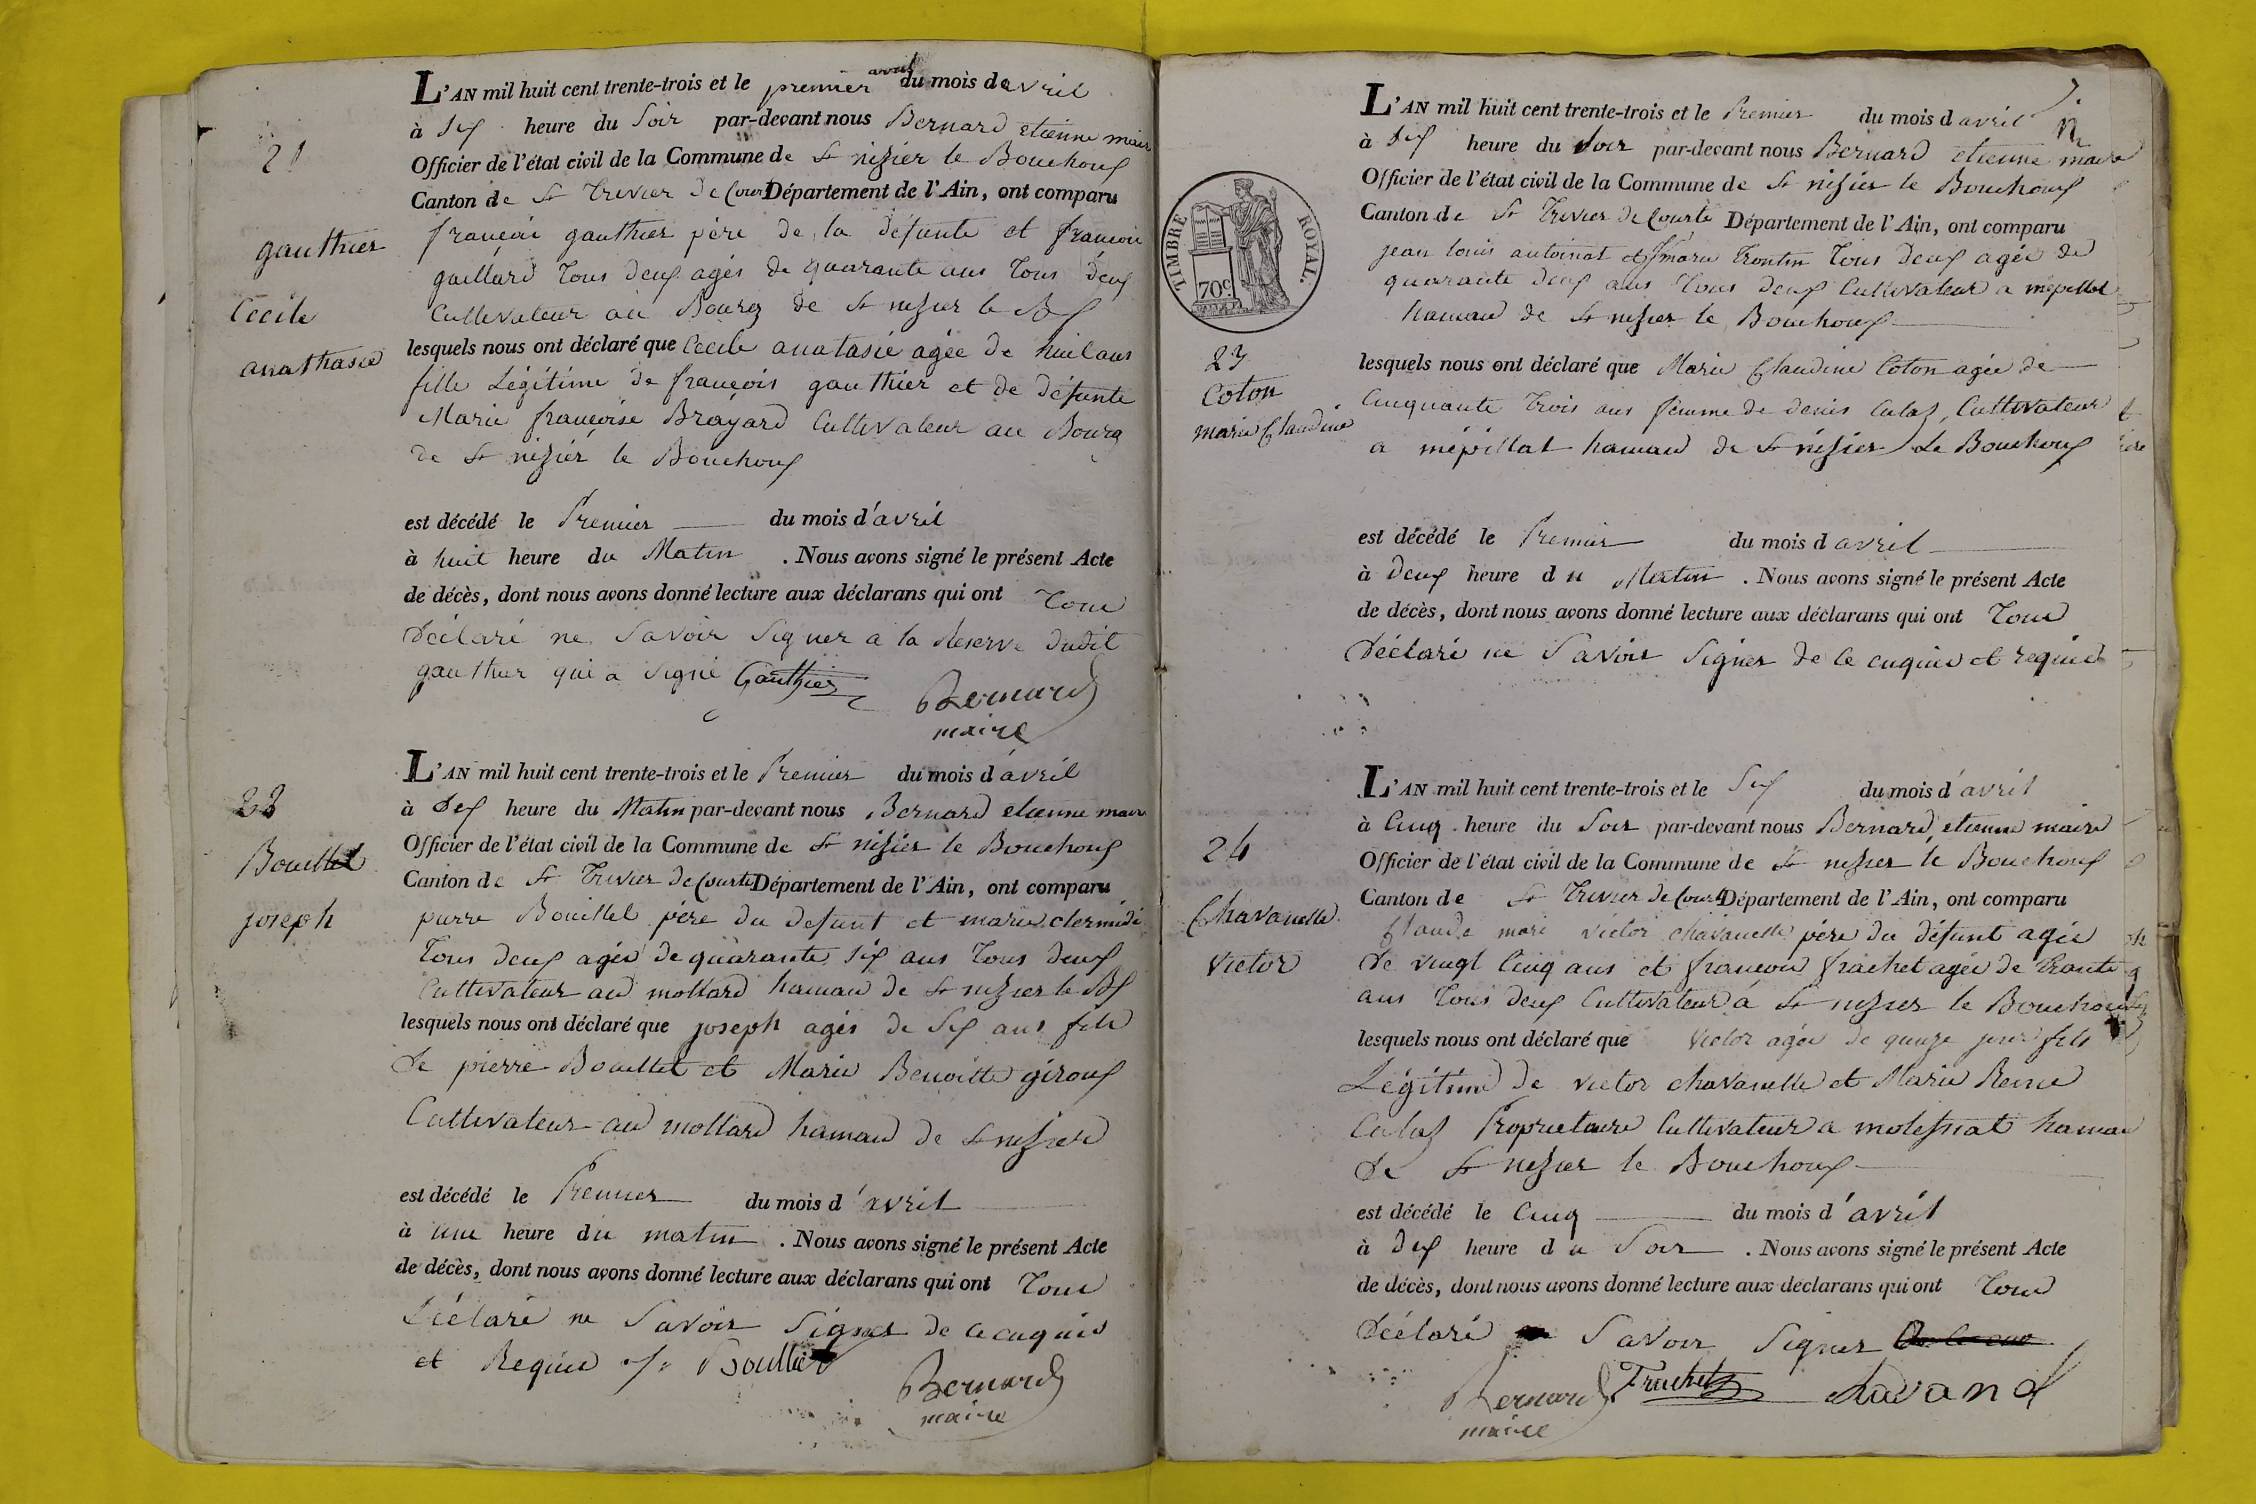 21
gauthier
Cécile
anathasie
L'AN mil huit cent trente-trois et le premier avril du mois de avril
à Six heure du Soir par-devant nous Bernard etienne maire
Officier de l'état civil de la Commune de St nizier le Bouchoux
Canton de St Trivier de Courte Département de l'Ain, ont comparu
françois gauthier père de la défunte et françois
gaillard tous deux agés de quarante ans tous deux
Cultivateur au Bourg de St nizier le Bx
lesquels nous ont déclaré que Cécile anatasie agée de huit ans
fille Légitime de françois gauthier et de défunte
Marie françoise Brayard Cultivateur au Bourg
de St nizier le Bouchoux
est décédé le Premier du mois d'avril
à huit heure du Matin . Nous avons signé le présent Acte
de décès, dont nous avons donné lecture aux déclarans qui ont Tous
Déclaré ne Savoir Signer a la Reserve dudit
gauthier qui a Signé Gauthier
Bernard
maire
22
Bouillet
joseph
L'AN mil huit cent trente-trois et le Premier du mois d'avril
à Dix heure du Matin par-devant nous Bernard etienne maire
Officier de l'état civil de la Commune de St nizier le Bouchoux
Canton de St Trivier de Courte Département de l'Ain, ont comparu
pierre Bouillet père du defunt et marie clermidi
Tous deux agés de quarante six ans Tous deux
Cultivateur au mollard hamau de St nizier le Bx
lesquels nous ont déclaré que joseph agés de Six ans fils
de pierre Bouillet et Marie Benoitte giroux
Cultivateur au mollard hamau de St nizier
est décédé le Premier du mois d'avril
à une heure du matin . Nous avons signé le présent Acte
de décès, dont nous avons donné lecture aux déclarans qui ont Tous
Déclaré ne Savoir Signer de ce enquis
et Requis Bouillet
Bernard
maire
TIMBRE ROYAL.
70c
23
Coton
marie Claudine
L'AN mil huit cent trente-trois et le Premier du mois d avril
à Dix heure du Soir par-devant nous Bernard etienne maire
Officier de l'état civil de la Commune de St nizier le Bouchoux
Canton de St Trivier de Courte Département de l'Ain, ont comparu
jean louis antoinat et marie Trontin Tous deux agés de
quarante deux ans Tous deux Cultivateur a mépillat
hamau de St nizier le Bouchoux
lesquels nous ont déclaré que Marie Claudine Coton agée de
Cinquante Trois ans femme de denis Calas, Cultivateur
a mépillat hamau de St nizier Le Bouchoux
est décédé le Premier du mois d avril
à deux heure du Matin . Nous avons signé le présent Acte
de décès, dont nous avons donné lecture aux déclarans qui ont Tous
Déclaré ne Savoir Signer de ce enquis et requis
24
Chavanelle
Victor
L'AN mil huit cent trente-trois et le Six du mois d'avril
à Cinq heure du Soir par-devant nous Bernard etienne maire
Officier de l'état civil de la Commune de St nizier le Bouchoux
Canton de St Trivier de Courte Département de l'Ain, ont comparu
Claude mari victor chavanelle père du défunt agés
de vingt Cinq ans et françois frachet agée de Trante
ans Tous deux Cultivateur à St nizier le Bouchoux
lesquels nous ont déclaré que Victor agée de quinze jour fils
Légitime de victor chavanelle et Marie Reine
Calas Proprietaire Cultivateur a molessiat hamau
de St nizier le Bouchoux
est décédé le Cinq du mois d'avril
à Dix heure du Soir . Nous avons signé le présent Acte
de décès, dont nous avons donné lecture aux déclarans qui ont Tous
Déclaré Savoir Signer
Bernard Frachet chavanel
maire